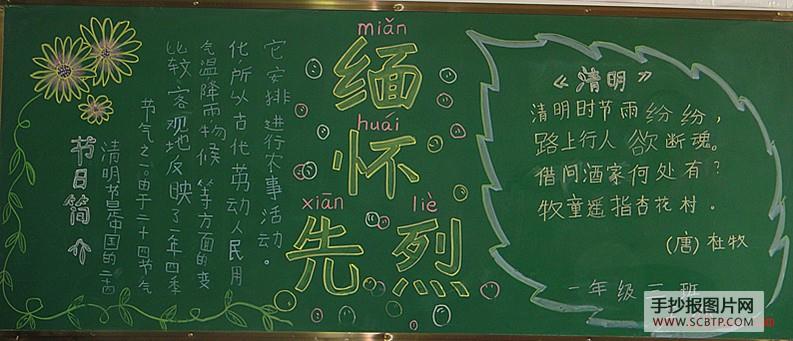 节日简介
清明节是中国的二十四
节气之一。由于二十四节气
比较客观地反映了一年四季
气温降雨物候等方面的变
化,所以古代劳动人民用
它安排进行农事活动。
miǎn
缅
huái
怀
xiān liè
先烈
《清明》
清明时节雨纷纷,
路上行人欲断魂。
借问酒家何处有?
牧童遥指杏花村。
(唐)杜牧
一年级三班
手抄报图片网
WWW.SCBTP.COM